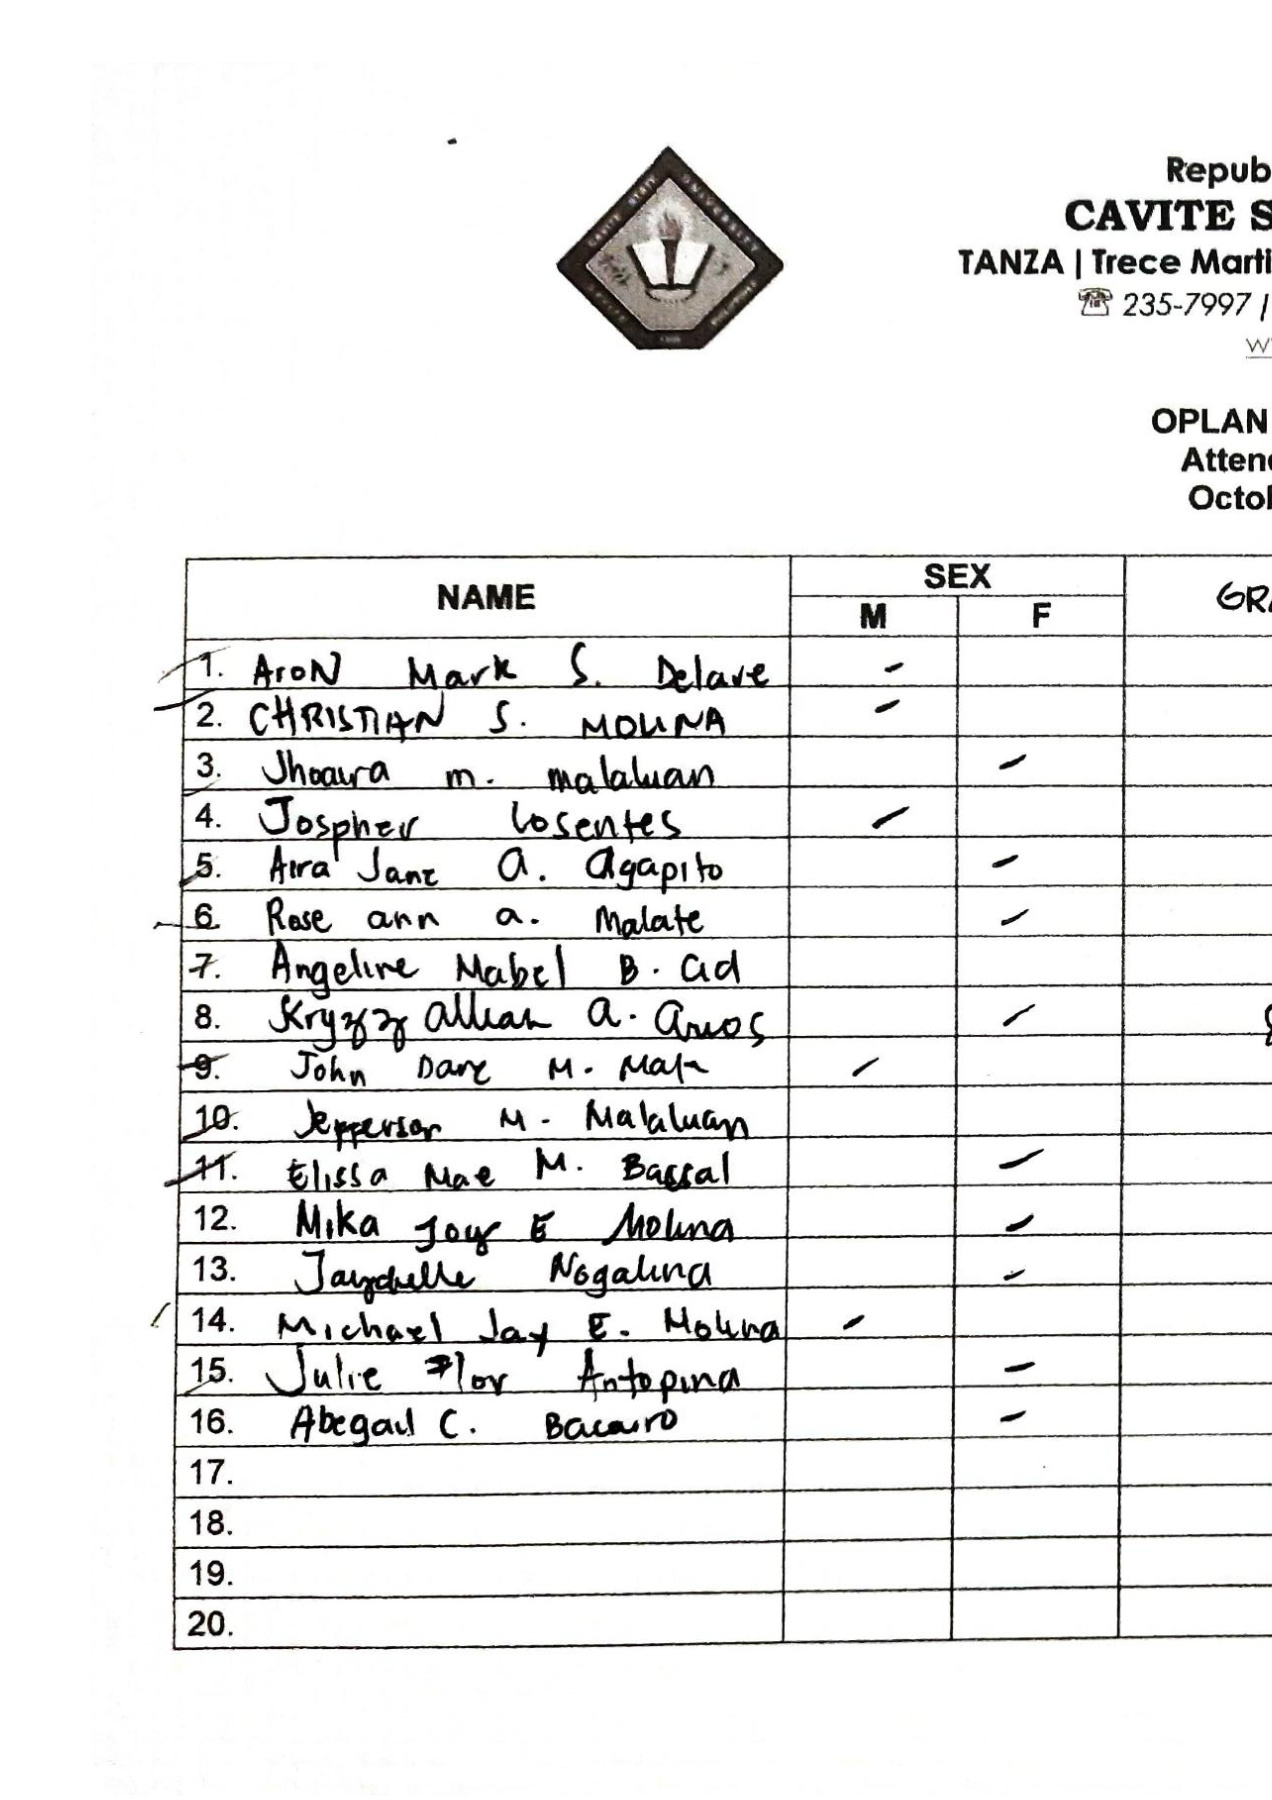 CAVITE STATE UNIVERSITY
Repub
CAVITE S
TANZA | Trece Marti
☏ 235-7997 /
w
OPLAN
Atten
Octo
NAME SEX GRA
M F
1. AroN Mark S. Delave -
2. CHRISTIAN S. MOLINA -
3. Jhoaira m. malaluan -
4. Jospher Losentes -
5. Aira Jane A. Agapito -
6. Rose ann a. Malate -
7. Angeline Mabel B. Cid
8. Kryzzy Allian A. -
9. John Dave M. -
10. Jepperson M. Malaluan
11. Elissa Mae M. Bassal -
12. Mika Joy E Molina -
13. Nogalina -
14. Michael Jay E. Molina -
15. Julie Flor Antopina -
16. Abegail C. -
17.
18.
19.
20.